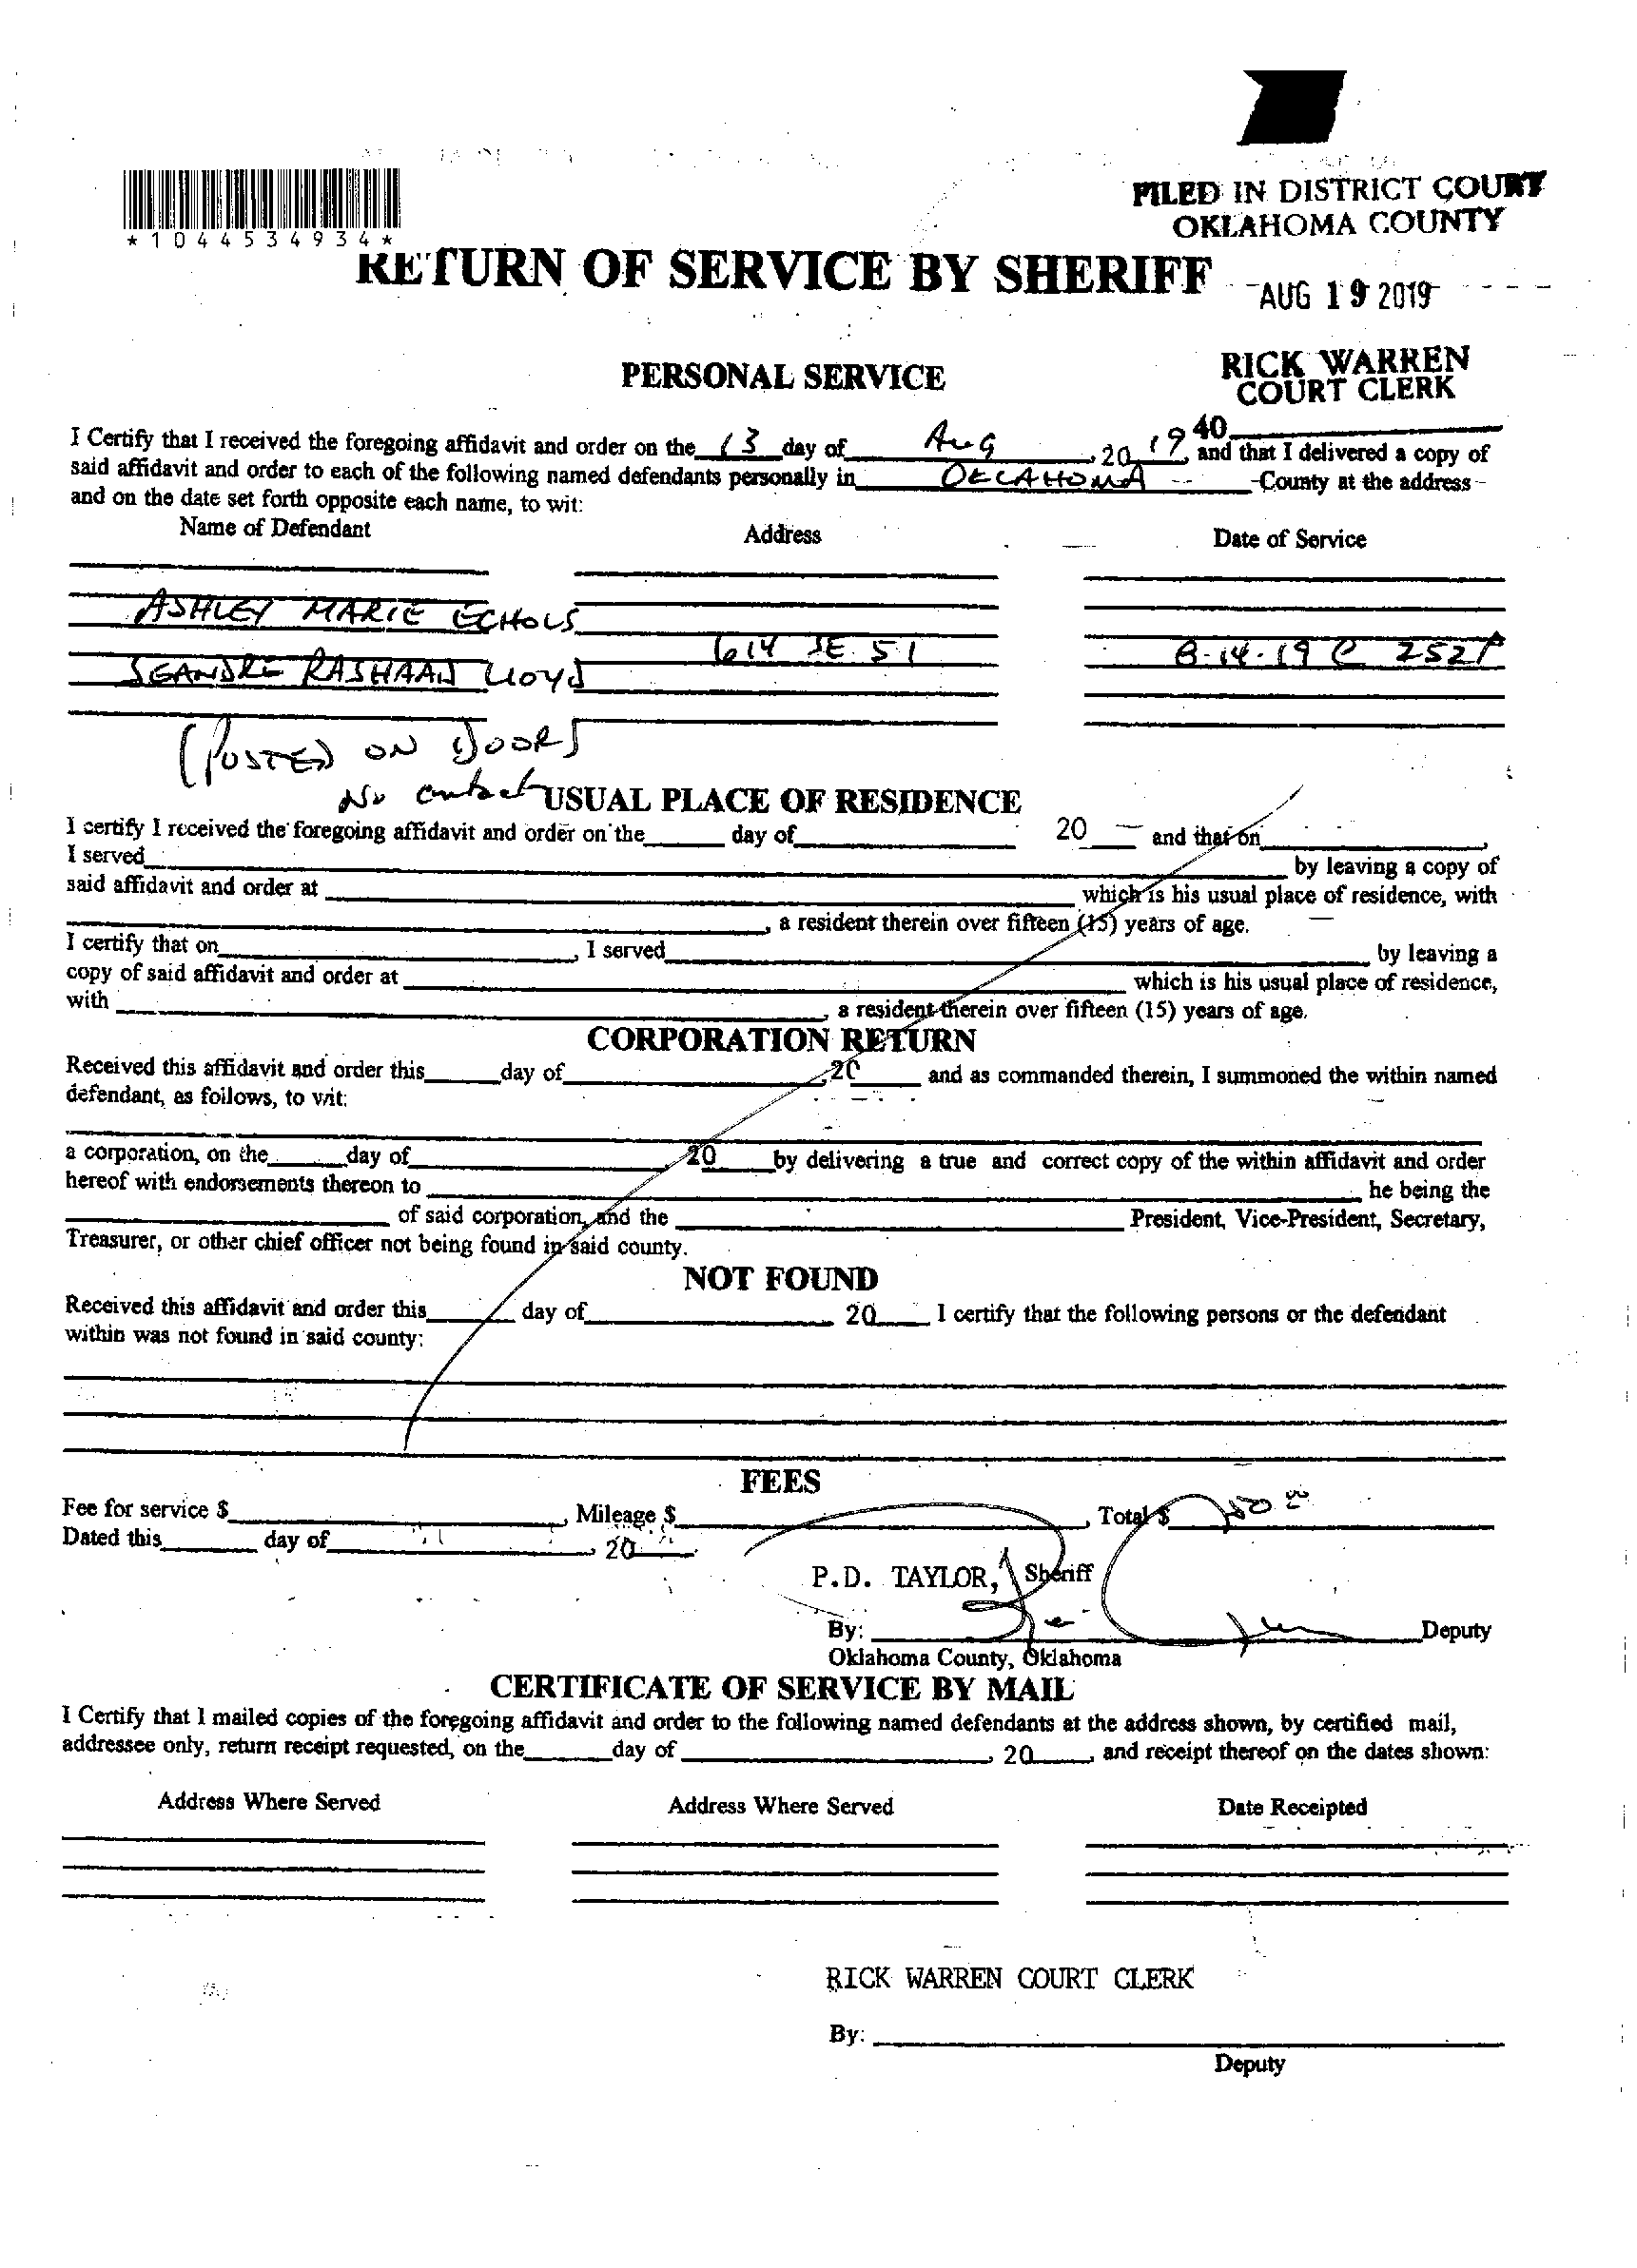 FILED IN DISTRICT COURT
OKLAHOMA COUNTY
*1044534934*
RETURN OF SERVICE BY SHERIFF
AUG 19 2019
PERSONAL SERVICE
RICK WARREN
COURT CLERK
40
I Certify that I received the foregoing affidavit and order on the 13 day of Aug, 20 19, and that I delivered a copy of
said affidavit and order to each of the following named defendants personally in OKLAHOMA County at the address
and on the date set forth opposite each name, to wit:
Name of Defendant Address Date of Service
ASHLEY MARIE ECHOLS
614 SE 51 8-14-19 @ 252P
SEANDRE RASHAAN LLOYD
(POSTED ON DOOR)
No contact
USUAL PLACE OF RESIDENCE
I certify I received the foregoing affidavit and order on the day of 20 and that on
I served by leaving a copy of
said affidavit and order at which is his usual place of residence, with
, a resident therein over fifteen (15) years of age.
I certify that on , I served by leaving a
copy of said affidavit and order at which is his usual place of residence,
with , a resident therein over fifteen (15) years of age.
CORPORATION RETURN
Received this affidavit and order this day of ,20 and as commanded therein, I summoned the within named
defendant, as follows, to wit:
a corporation, on the day of , 20 by delivering a true and correct copy of the within affidavit and order
hereof with endorsements thereon to he being the
of said corporation, and the President, Vice-President, Secretary,
Treasurer, or other chief officer not being found in said county.
NOT FOUND
Received this affidavit and order this day of 20 I certify that the following persons or the defendant
within was not found in said county:
FEES
Fee for service $ , Mileage $ , Total $ 50 00
Dated this day of , 20
P.D. TAYLOR, Sheriff
By: Deputy
Oklahoma County, Oklahoma
CERTIFICATE OF SERVICE BY MAIL
I Certify that I mailed copies of the foregoing affidavit and order to the following named defendants at the address shown, by certified mail,
addressee only, return receipt requested, on the day of , 20 , and receipt thereof on the dates shown:
Address Where Served Address Where Served Date Receipted
RICK WARREN COURT CLERK
By:
Deputy